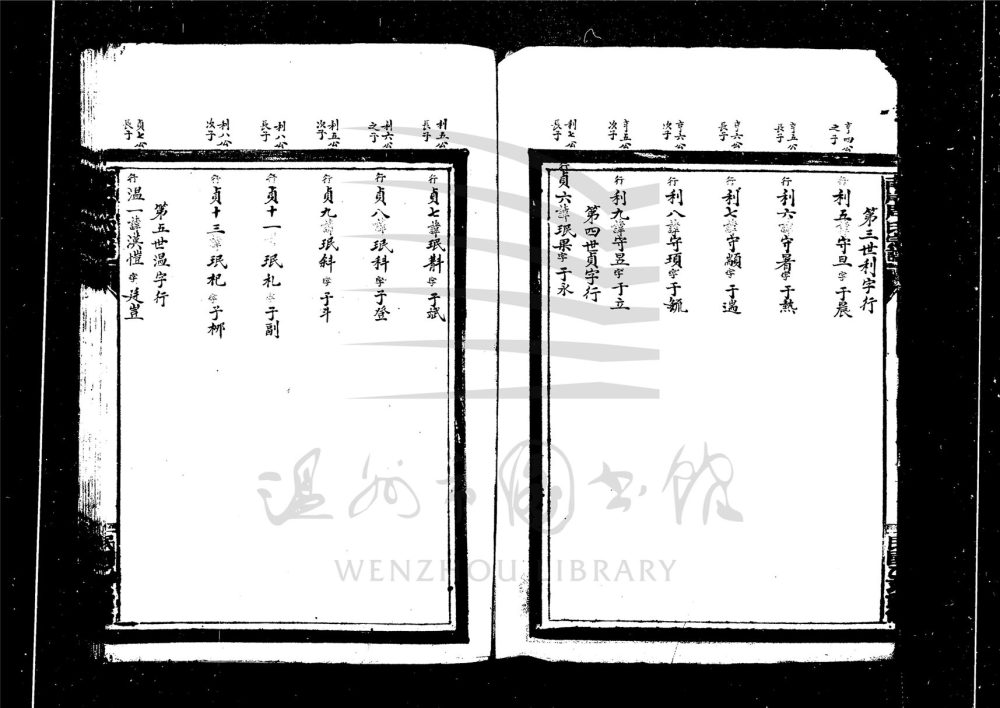 第三世利字行
亨四公之子
行利五諱守旦字于晨
亨五公長子
行利六諱守暑字于熱
亨六公長子
行利七諱守顒字于遇
亨六公次子
行利八諱守頊字于毓
亨五公次子
行利九諱守昱字于立
第四世貞字行
利七公長子
行貞六諱珉果字于永
利五公長子
行貞七諱珉斠字于斌
利六公之子
行貞八諱珉科字于登
利五公次子
行貞九諱珉斜字于斗
利八公長子
行貞十一諱珉札字于副
利八公次子
行貞十三諱珉杞字子柳
第五世温字行
貞七公長子
行温一諱漢愷字廷豈
温州市圖書館
WENZHOU LIBRARY